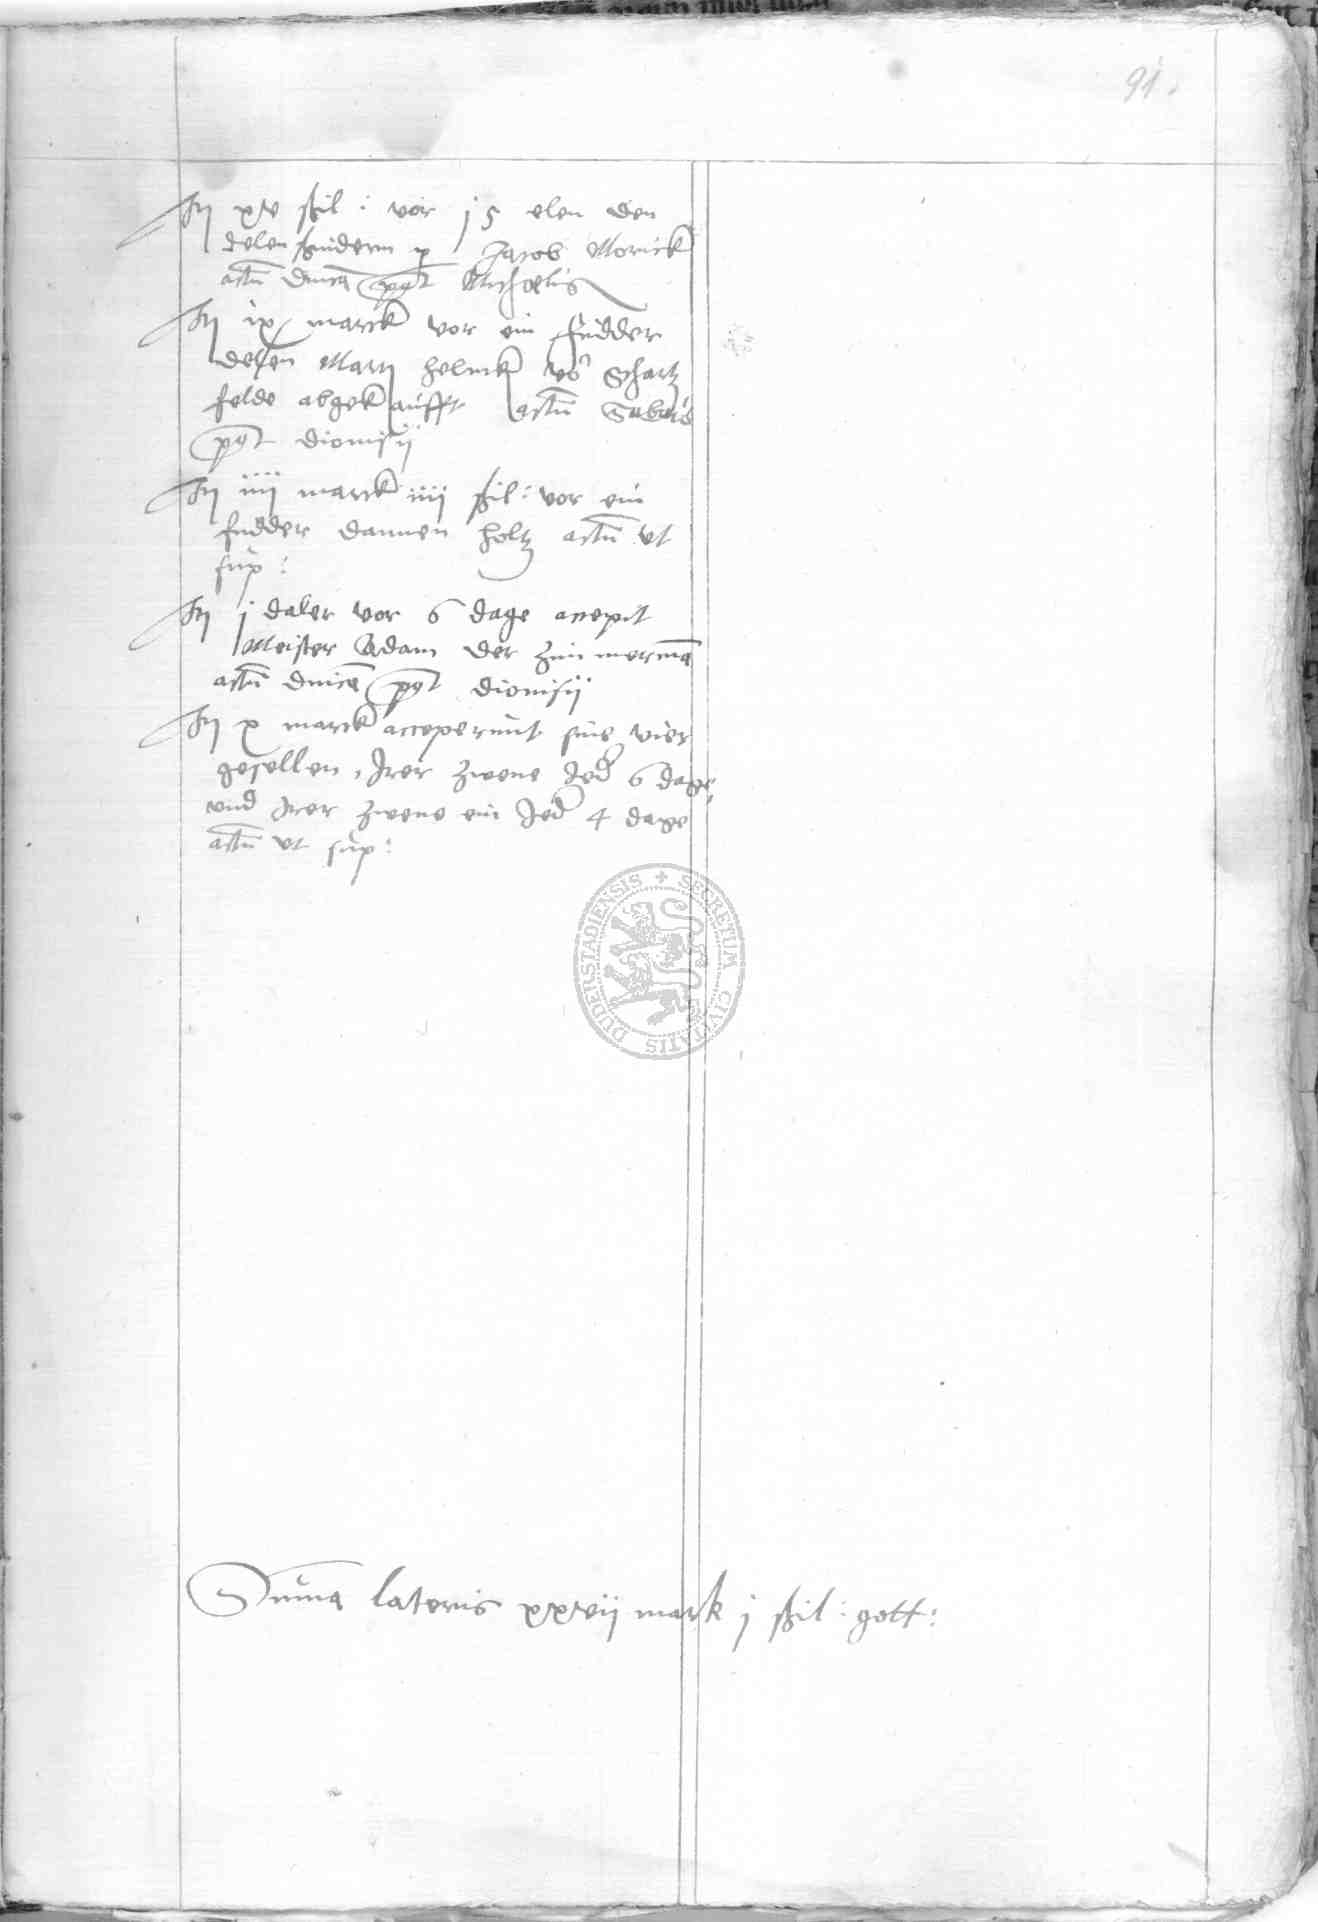 91.
It xv ßil: vor 15 elen den
delen snidern p Jacob Morick
actu dnica post Michaelis
It ix marck vor ein fudder
delen Marti Helmk vo Schartz
felde abgekaufft actu Sabato
post dionisij
It iiij marck iiij ßil: vor ein
fudder dannen holtz actu ut
sup:
It j daler vor 6 dage accepit
Meister Adam der zimmerma
actu dnica post dionisij
It x marck acceperunt sine vier
gesellen, Irer zwene Jed 6 dage,
vnd Irer zwene ein Jed 4 dage
actu ut sup:
SECRETUM CIVITATIS DUDERSTADIENSIS
Suma lateris xxvij mark j ßil: gott: